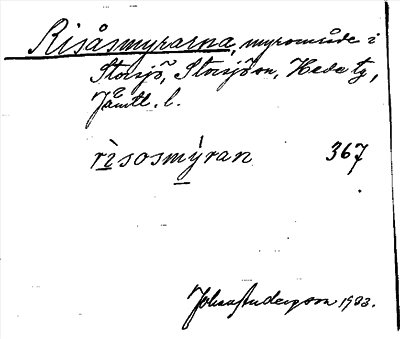 Risåsmyrarna, myrområde i
Storsjö, Storsjö sn, Hede tg,
Jämtl. l.
rìsosmýran 367
Johan Anderzon 1933.